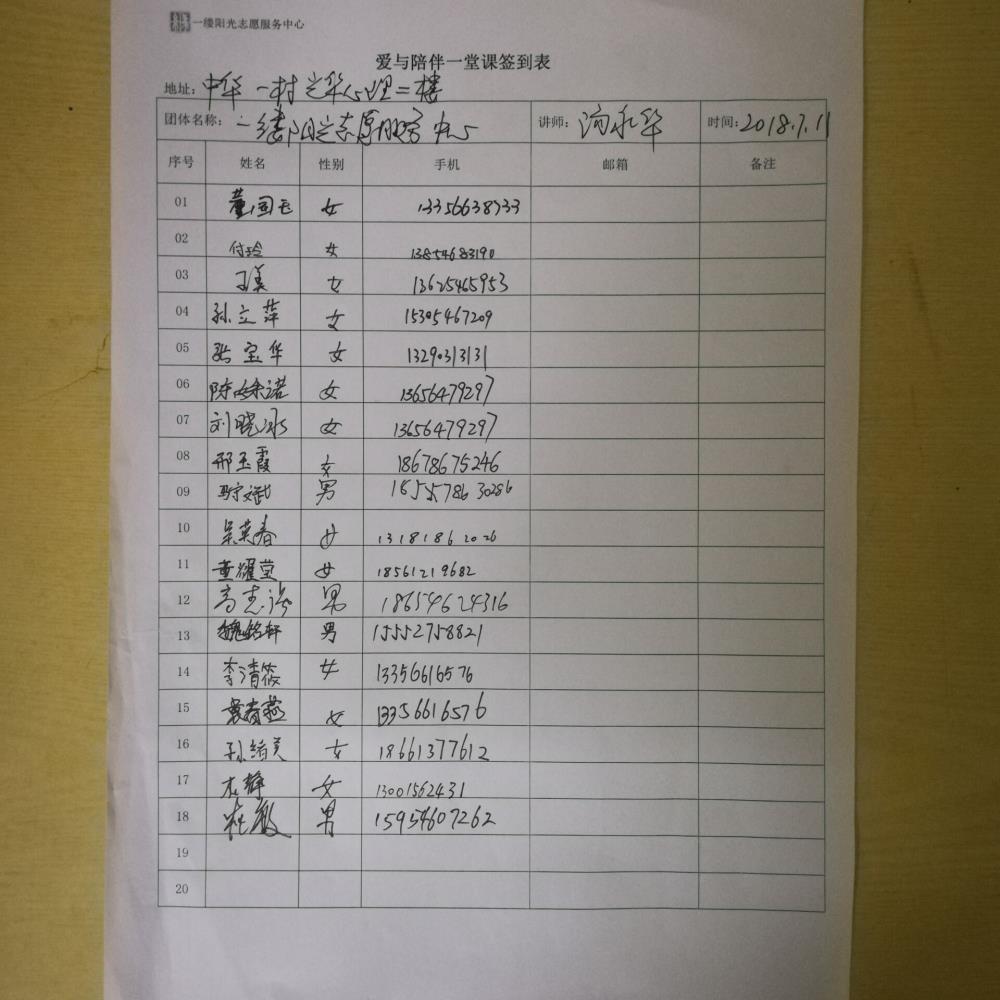 一缕阳光志愿服务中心
爱与陪伴一堂课签到表
地址: 中华一村 心理二楼
团体名称: 一缕阳光志愿服务中心 讲师: 永华 时间: 2018.7.11
序号 姓名 性别 手机 邮箱 备注
01 董国 女 13356638733
02 付玲 女 13854683190
03 女 13625465953
04 孙立萍 女 15305467209
05 张宝华 女 13290313131
06 陈 诺 女 13656479297
07 刘晓冰 女 13656479297
08 邢玉霞 女 18678675246
09 男 30286
10 吴英春 女 13181862026
11 董耀莹 女 18561219682
12 高志 男 18654624316
13 魏铭轩 男 15552758821
14 李清筱 女 13356616576
15 袁春燕 女 13356616576
16 孙绪美 女 18661377612
17 静 女 13001562431
18 男 15954607262
19
20